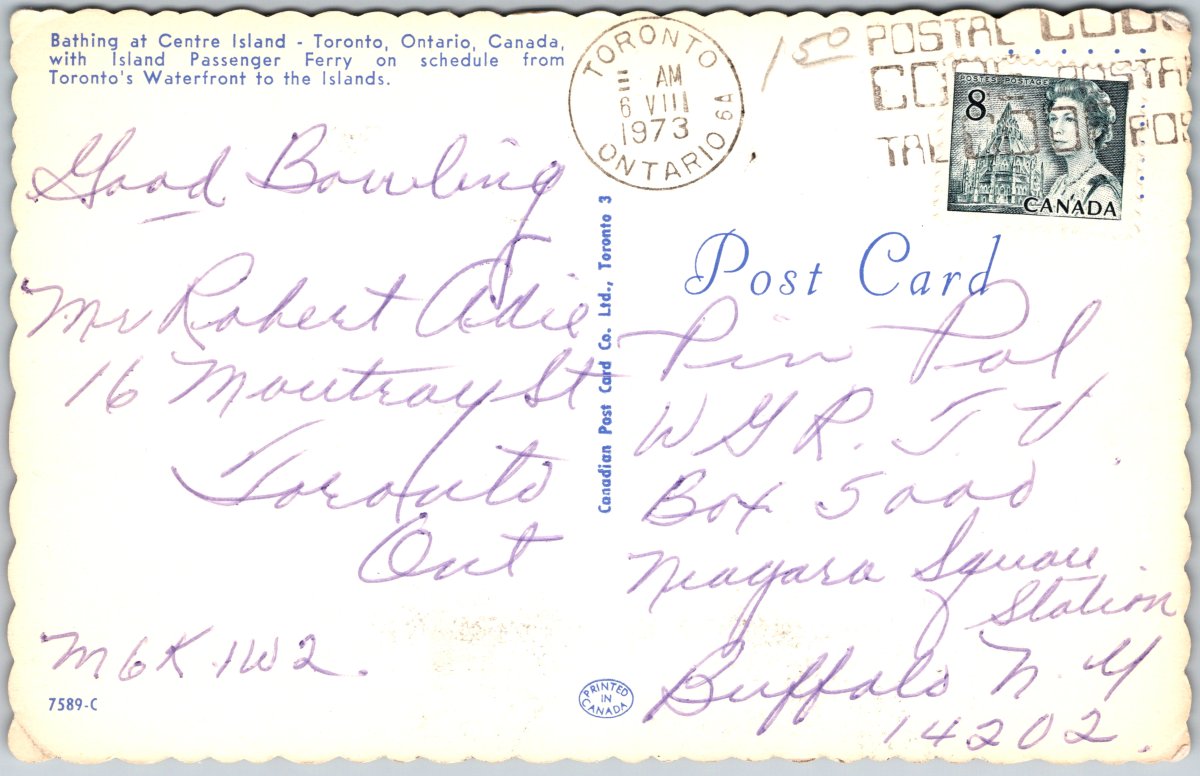 Bathing at Centre Island - Toronto, Ontario, Canada,
with Island Passenger Ferry on schedule from
Toronto's Waterfront to the Islands.
TORONTO
AM
6 VIII
1973
ONTARIO
6A
150
POSTAL CODE
CODE POSTAL
TAL CODE POS
POSTES POSTAGE
8
CANADA
Good Bowling
Mr Robert Adie
16 Montray St
Toronto
Ont
M6K 1W2.
7589-C
Canadian Post Card Co. Ltd., Toronto 3
PRINTED
IN
CANADA
Post Card
Pin Pal
WGR. TV
Box 5000
Niagara Square
Station
Buffalo N Y
14202.